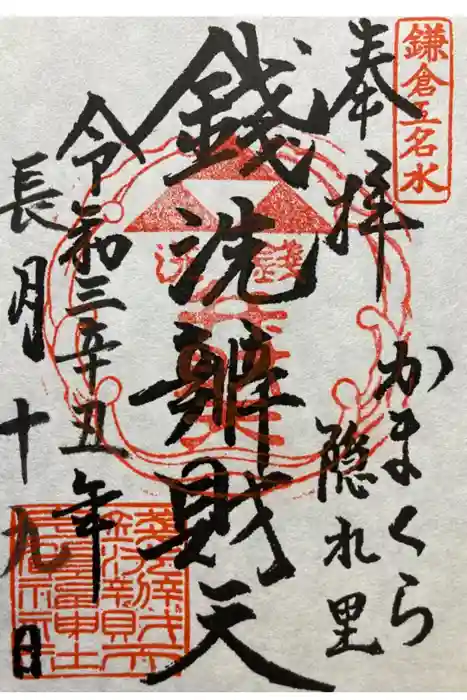 鎌倉五名水
奉拝
かまくら
隠れ里
銭洗
銭洗辨財天
令和三辛丑年
長月十九日